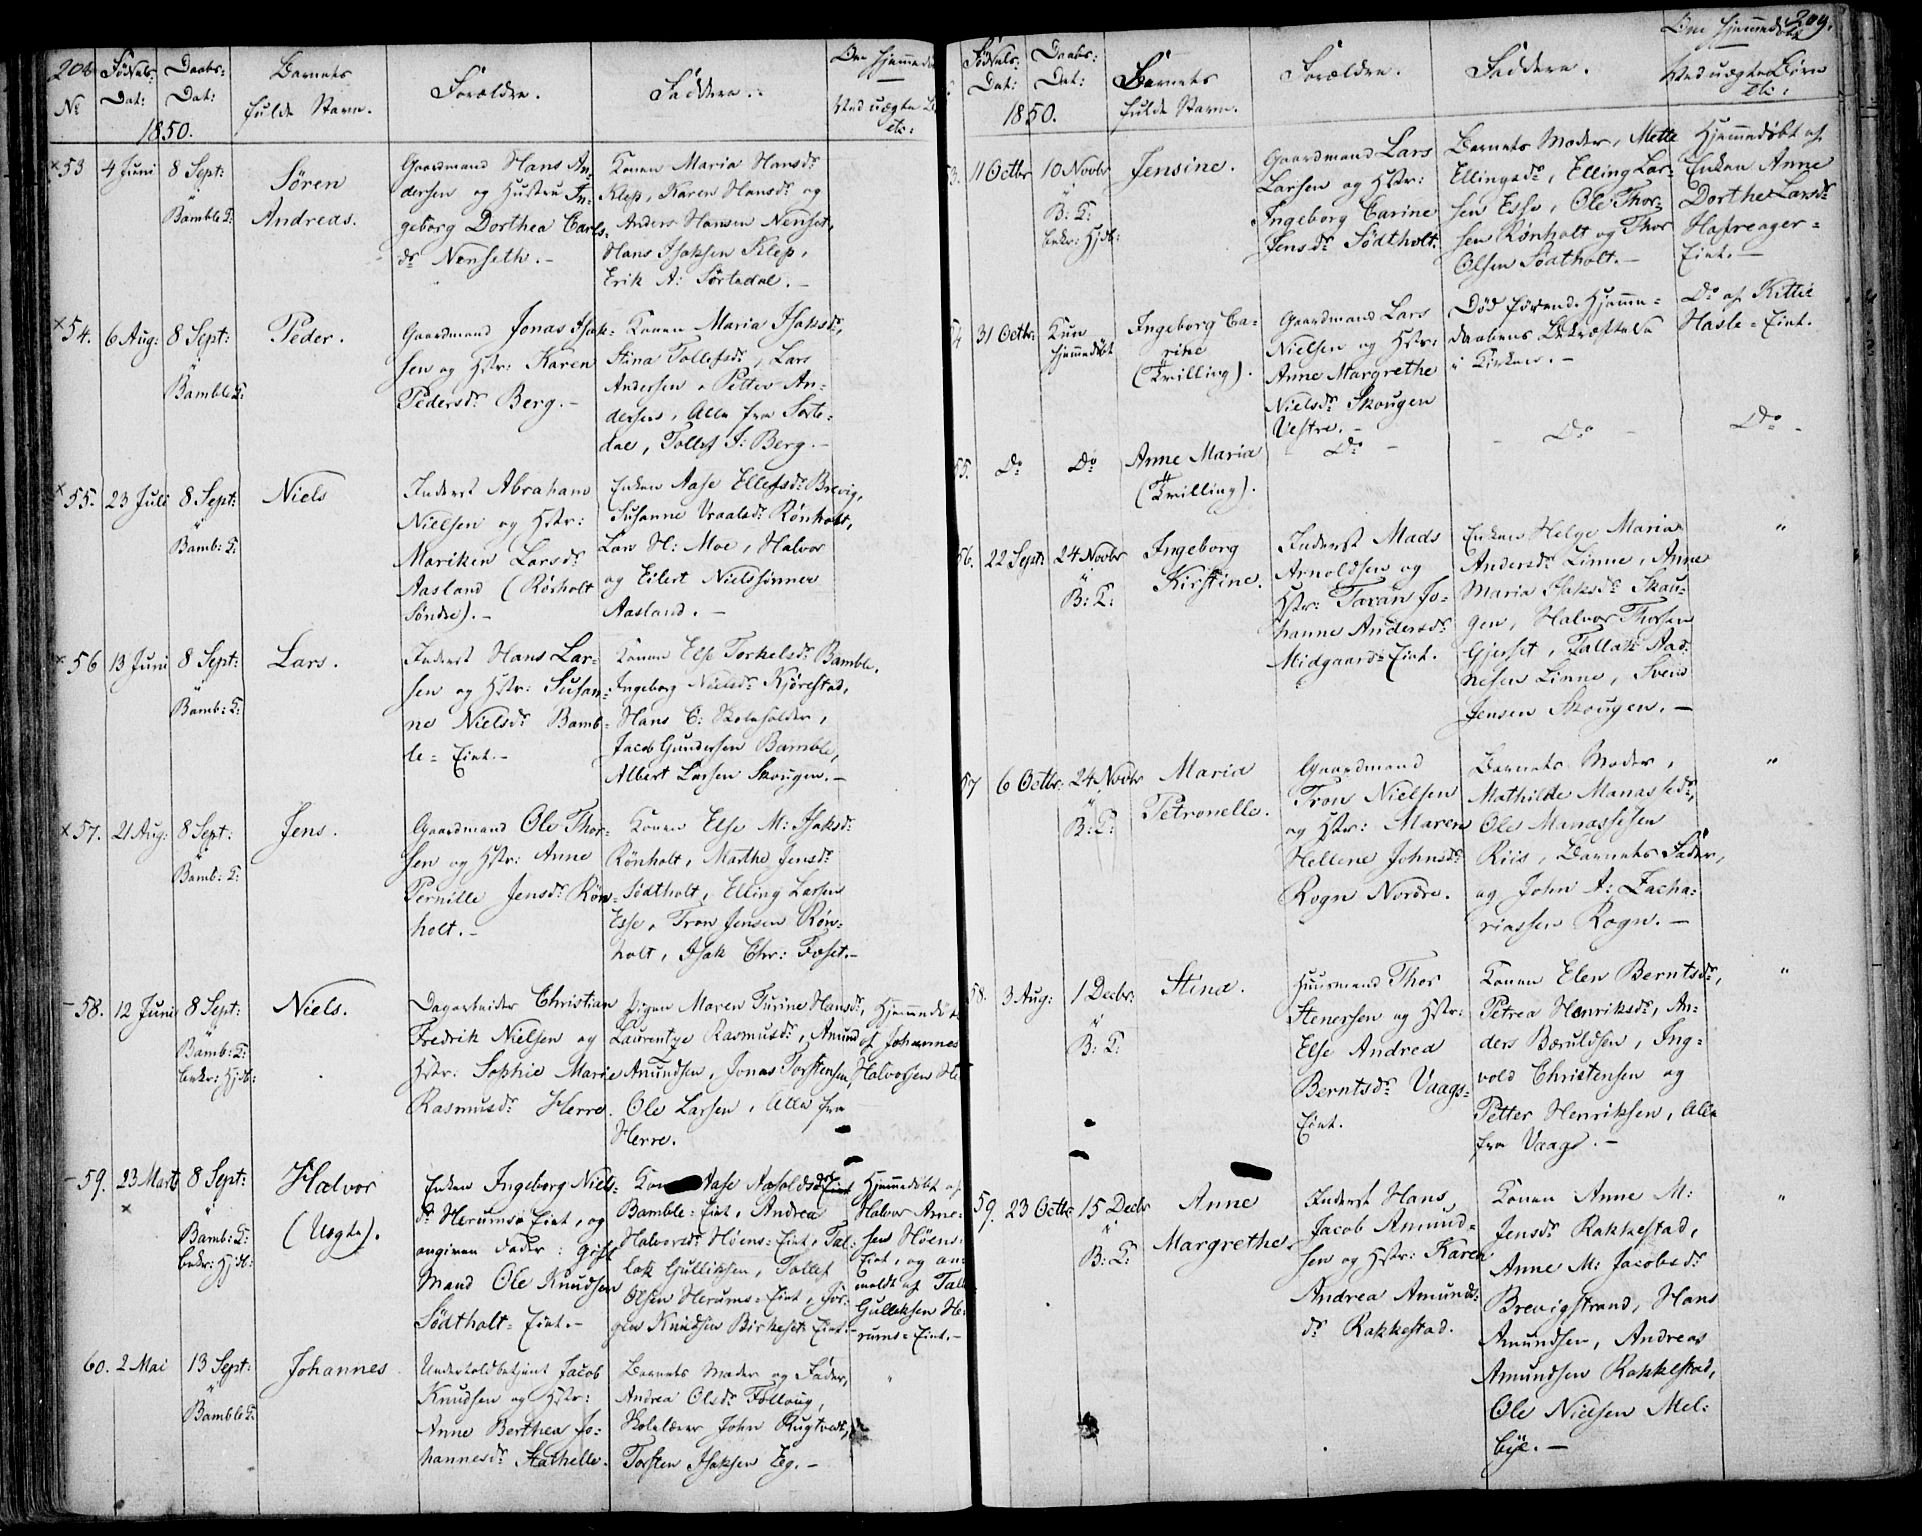 208
No
Fødsels-
Dat:
Daabs-
Dat:
1850.
Barnets
fulde Navn.
Forældre.
Faddere.
Om hjemmedø
Ved uægte B
etc:
×53
4 Juni
8 Sept:
Bamble K:
Sören
Andreas.
Gaardmand Hans An-
dersen og Hustru In-
geborg Dorthea Carls-
dr Nenseth.-
Konen Maria Hansdr
Klep, Karen Hansdr og
Anders Hansen Nenset,
Hans Isaksen Klep,
Erik A: Sørtedal.-
×54.
6 Aug:
8 Sept:
"
Bamble K:
Peder.
Gaardmand Jonas Isak-
sen og Hstr: Karen
Pedersdr Berg.-
Konen Maria Isaksdr,
Stina Tollefsdr, Lars
Andersen, Petter An-
dersen, Alle fra Sorte-
dal, Tollef J: Berg.-
×55.
23 Juli
8 Sept:
"
Bamb: K:
Niels
Inderst Abraham
Nielsen og Hstr:
Mariken Larsdr
Aasland (Rørholt
Søndre).-
Enken Aase Ellefsdr Brevig,
Susanne Vraalsdr Rönholt,
Lars H: Moe, Halvor
og Eilert Nielssönner
Aasland.-
×56
13 Juni
8 Sept:
"
Bamb: K:
Lars.
Inderst Hans Lar-
sen og Hstr: Susan-
ne Nielsdr Bamb-
le-Eiet.-
Konen Else Torkelsdr Bamble.
Ingeborg Nielsdr Kjörestad,
Hans C: Skoleholder,
Jacob Gundersen Bamble,
Albert Larsen Skougen.-
×57.
21 Aug:
8 Sept:
"
Bamb: K:
Jens.
Gaardmand Ole Thor-
sen og Hstr: Anne
Pernille Jensdr Rön-
holt.-
Konen Else M: Isaksdr
Rönholt, Marthe Jensdr
Södtholt, Elling Larsen
Esse, Tron Jensen Rön-
holt, Isak Chr: Foset.-
-58.
12 Juni
8 Sept:
"
Bamb: K:
bekr: Hj:d:
Niels.
Dagarbeider Christian
Fredrik Nielsen og
Hstr: Sophie Marie
Rasmusdr Herre.
Pigen Maren Turine Hansdr,
Laurentze Rasmusdr, Amund
Amundsen, Jonas Torstensen,
Ole Larsen, Alle fra
Herre.
Hjemmedøbt
af Johannes
Halvorsen He
-59.
23 Marts
×
8 Sept:
"
Bamb: K:
bekr: Hj:d:
Halvor
(Uægte).
Enken Ingeborg Niels-
dr Herums-Eiet, og
angiven Fader: Gift
Mand Ole Knudsen
Södtholt-Eiet.-
Konen Aase Aasoldsdr Eiet
Bamble-Eiet, Andrea
Halvorsdr Höens-Eiet, Tal-
lak Gulliksen, Tollef
Olsen Herums-Eiet, Jör-
gen Knudsen Birkeset-Eiet.-
Hjemmedøbt af
Halvor Arne-
sen Höens-
Eiet, og an-
meldt af Tall
Gulliksen He-
rums-Eiet.-
60.
2 Mai
13 Sept:
"
Bamble K:
Johannes.
Underholdbetjent Jacob
Knudsen og Hstr:
Anne Berthea Jo-
hannesdr Stathelle.
Barnets Moder og Fader,
Andrea Olsdr Folloug,
Skolelærer John Rugtvedt,
Torsten Isaksen Eg.-
"
209.
Fødsels-
Dat:
Daabs-
Dat:
1850.
Barnets
fulde Navn.
Forældre.
Faddere.
Om hjemmedøbt
Ved uægte Børn
etc:
53.
11 Octbr
10 Novbr
"
B: K:
bekr: Hj:d:
Jensine.
Gaardmand Lars
Larsen og Hstr:
Ingeborg Carine
Jensdr Södtholt.
Barnets Moder, Mette
Ellingsdr, Elling Lar-
sen Esse, Ole Thor-
sen Rönholt og Thor
Olsen Södtholt.-
Hjemmedøbt af
Enken Anne
Dorthe Larsdr
Hafreager-
Eiet.-
54
31 Octbr:
Kun
hjemmedøbt
Ingeborg Ca-
rine
(Tvilling).
Gaardmand Lars
Nielsen og Hstr:
Anne Margrethe
Nielsdr Skougen
Vestre.-
Død førend Hjemme-
daabens Bekræftelse
i Kirken.-
Do af Kittil
Hasle-Eiet.
55.
Do
Do
Anne Maria
(Tvilling).
Do -
- Do -
Do -
56.
22 Sept:
24 Novbr
"
B: K:
Ingeborg
Kirstine.
Inderst Mads
Arnoldsen og
Hstr: Taran Jo-
hanne Andersdr
Midgaards-Eiet.
Enken Helge Maria
Andersdr Linne, Anne
Maria Isaksdr Skou-
gen, Halvor Thorsen
Gjerset, Tallak Aad-
nesen Linne, Svend
Jensen Skougen.-
"
57
6 Octbr:
24 Novbr
"
B: K:
Maria
Petronelle.
Gaardmand
Tron Nielsen
og Hstr: Maren
Hellene Johnsdr
Rogn Nordre.
Barnets Moder,
Mathilde Manassesdr,
Ole Manassesen
Riis, Barnets Fader,
og John A: Zacha-
riassen Rogn.-
"
58.
3 Aug:
1 Decbr:
"
B: K:
Stina.
Huusmand Thor
Stenersen og Hstr:
Else Andrea
Berntsdr Vaags-
Eiet.
Konen Elen Berntsdr,
Petrea Henriksdr, An-
ders Bæruldsen, Ing-
vold Christensen og
Petter Henriksen, Alle
fra Vaags.-
"
59.
23 Octbr
15 Decbr
"
B: K:
Anne
Margrethe.
Inderst Hans
Jacob Amund-
sen og Hstr: Karen
Andrea Amunds-
dr Rakkestad.
Konen Anne M:
Jensdr Rakkestad,
Anne M: Jacobsdr
Brevigstrand, Hans
Amundsen, Andreas
Amundsen Rakkestad,
Ole Nielsen Mel-
bye.-
"